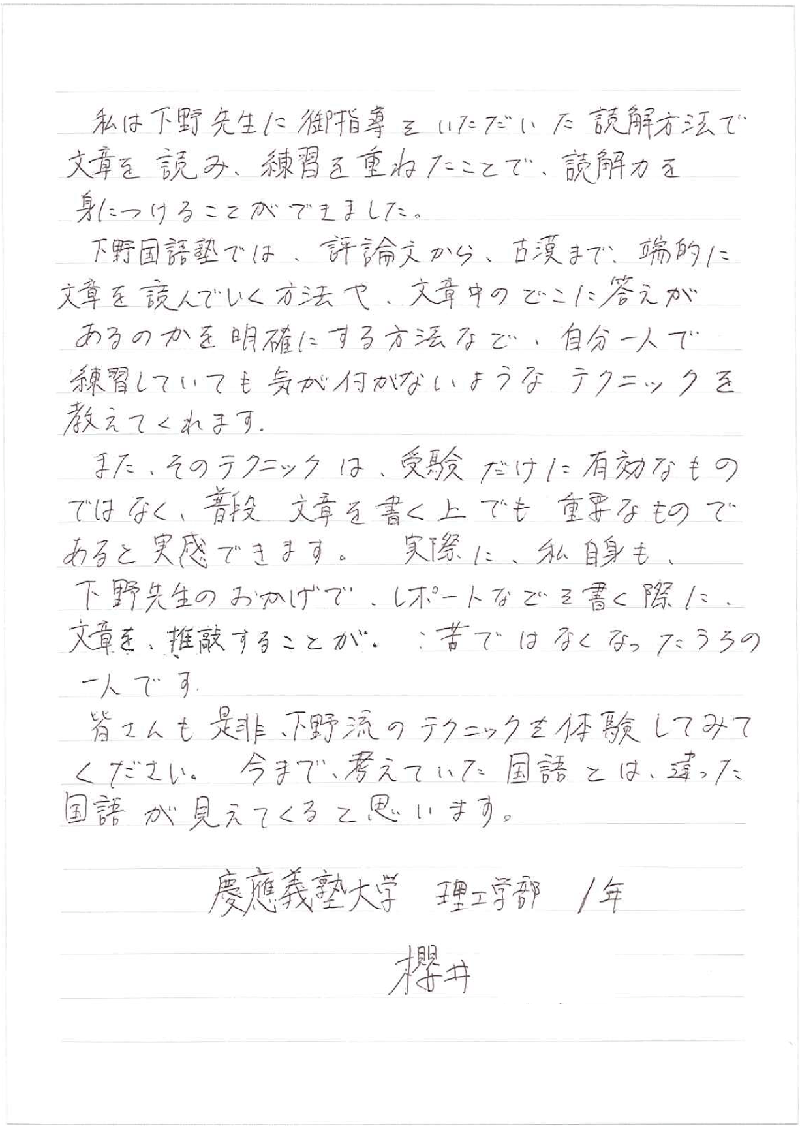 私は下野先生に御指導をいただいた読解方法で
文章を読み、練習を重ねたことで、読解力を
身につけることができました。
下野国語塾では、評論文から、古漢まで、端的に
文章を読んでいく方法や、文章中のどこに答えが
あるのかを明確にする方法など、自分一人で
練習していても気が付かないようなテクニックを
教えてくれます.
また、そのテクニックは、受験だけに有効なもの
ではなく、普段 文章を書く上でも重要なもので
あると実感できます。 実際に、私自身も、
下野先生のおかげで、レポートなどを書く際に、
文章を、推敲することが、苦ではなくなったうちの
一人です.
皆さんも是非、下野流のテクニックを体験してみて
ください。 今まで、考えていた国語とは、違った
国語が見えてくると思います。
慶應義塾大学 理工学部 1年
櫻井